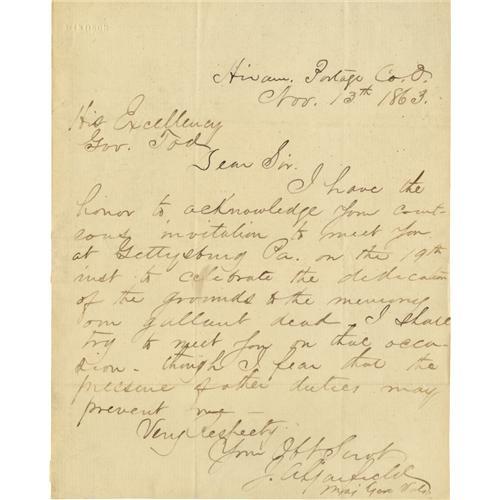 Hiram. Portage Co. O.
Nov. 13th 1863.
His Excellency
Gov. Tod
Dear Sir.
I have the
honor to acknowledge your court-
eous invitation to meet you
at Gettysburg Pa. on the 19th
inst to celebrate the dedication
of the grounds to the memory
our gallant dead. I shall
try to meet you on that occa-
sion - though I fear that the
pressure of other duties may
prevent me -
Very respectly
Your Obt Servt
J. A. Garfield
Maj Gen Vols